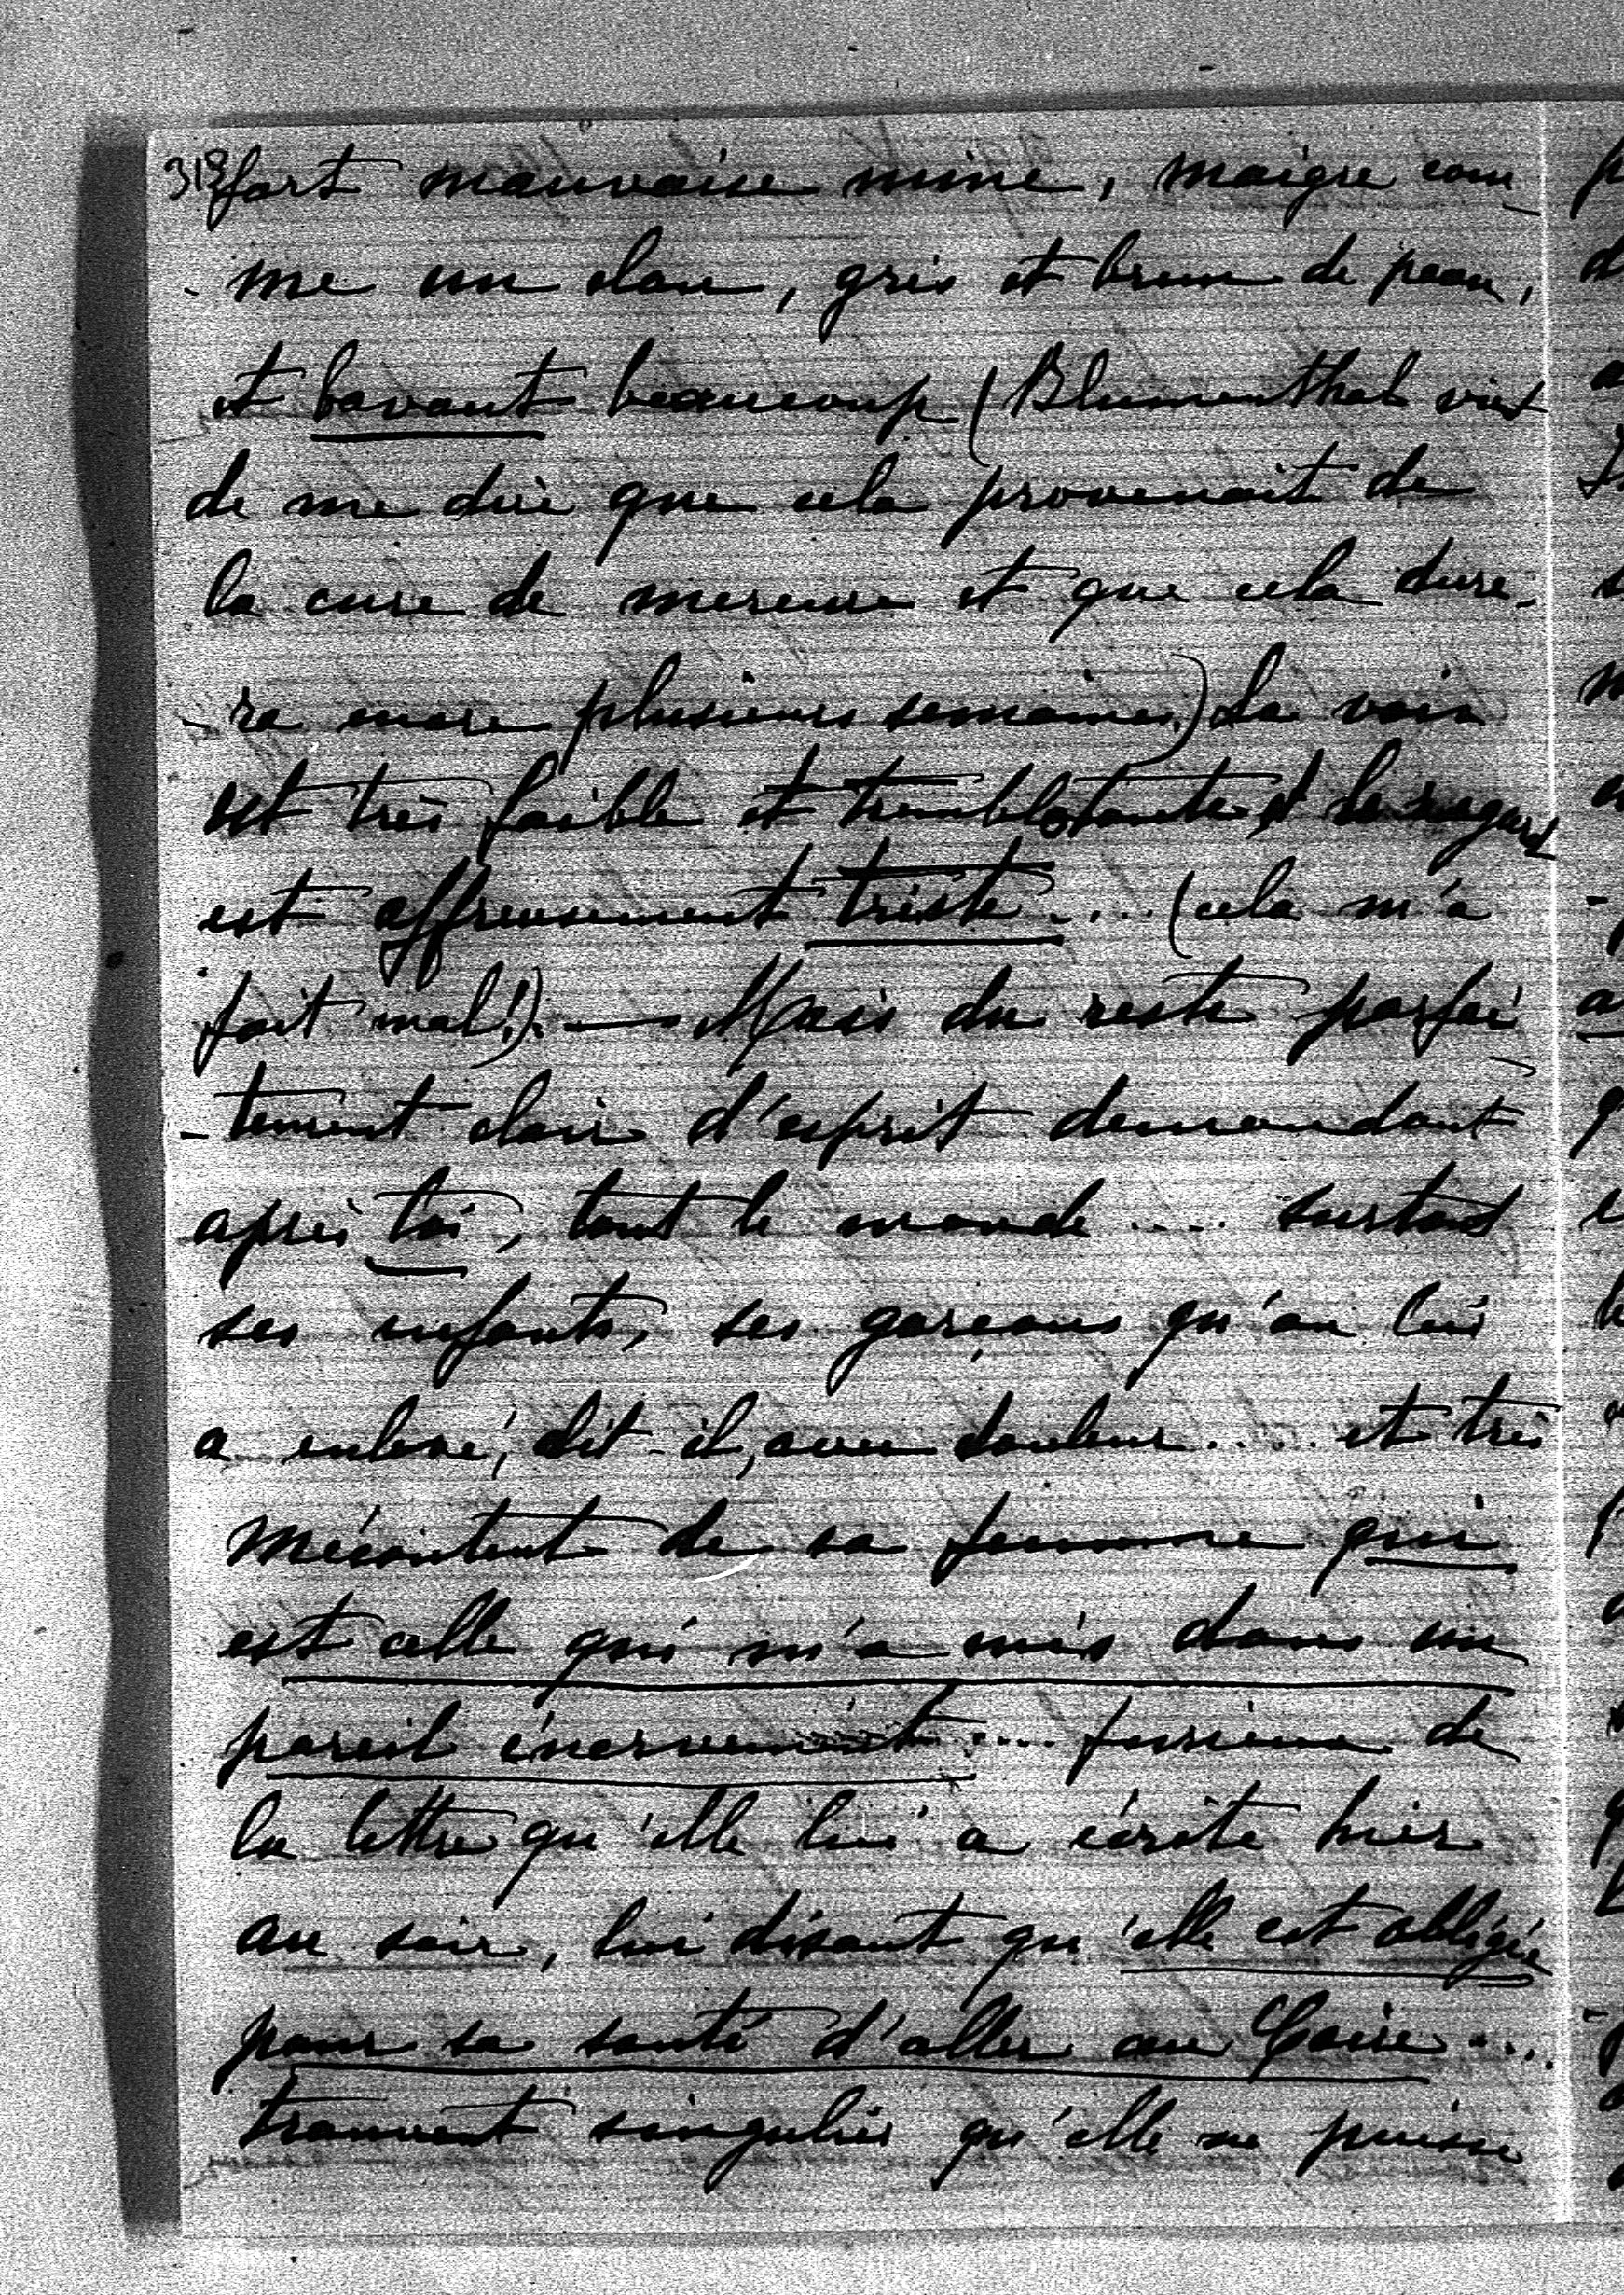 319 fort mauvaise mine, maigre com
-me un clou, gris et brun de peau,
et bavant beaucoup (Blumenthal vient
de me dire que cela provenait de
la cure de mercure et que cela dure-
-ra encore plusieurs semaines) La voix
est très faible et tremblotante et le regard
est affreusement triste.... (cela m'a
fait mal!). — Mais du reste parfai
-tement clair d'esprit demandant
après toi, tout le monde .... surtout
ses enfants, ses garçons qu'on lui
a enlevé, dit-il, avec douleur..... et très
mécontent de sa femme qui
est celle qui m'a mis dans un
pareil énervement.... furieux de
la lettre qu'elle lui a écrite hier
au soir, lui disant qu'elle est obligée
pour sa santé d'aller au Caire....
trouvant singulier qu'elle ne puisse